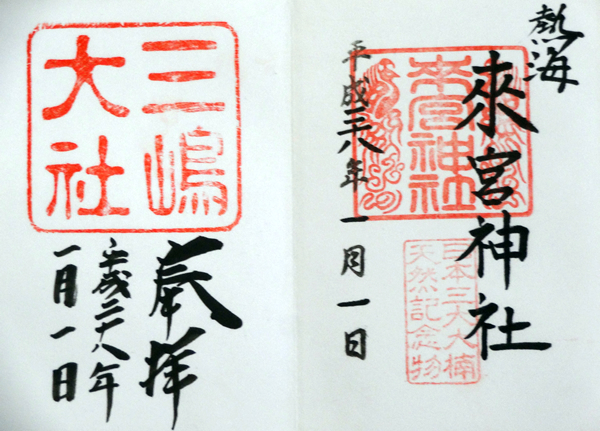 熱海
來宮神社
来宮神社
平成二十八年一月一日
日本三大大楠
天然記念物
三嶋
大社
奉拝
平成二十八年
一月一日